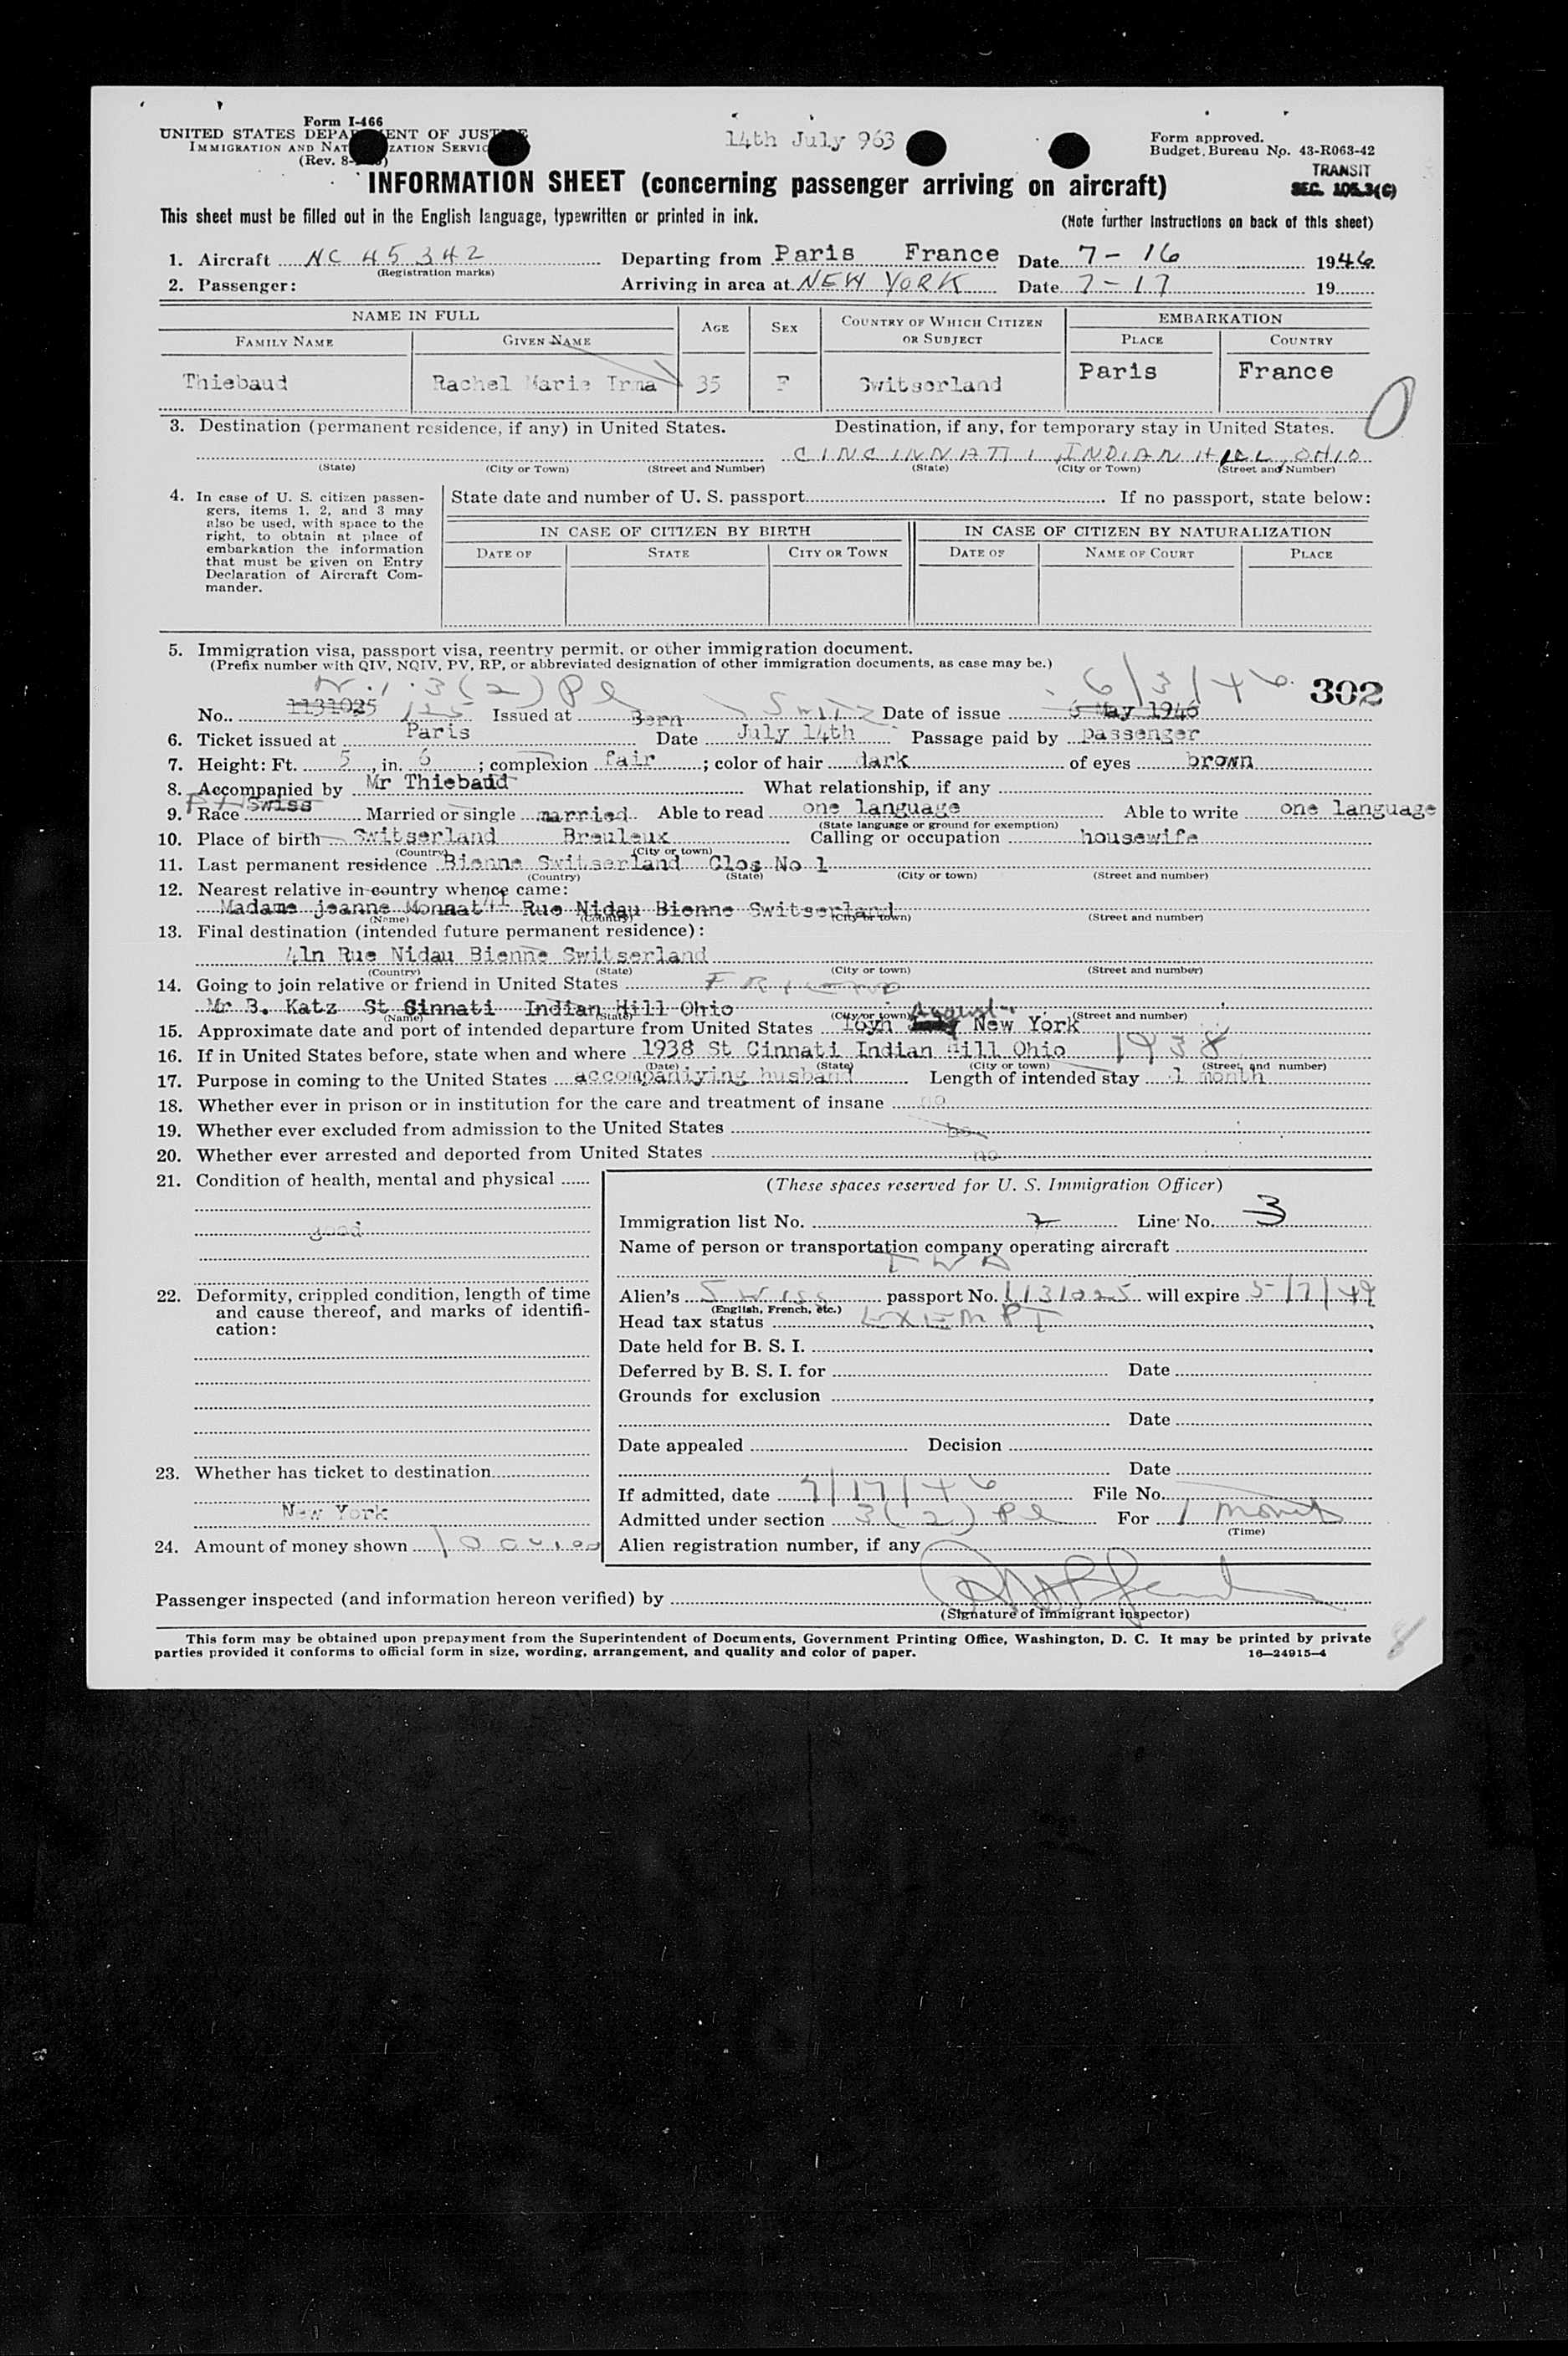 Form I-466
UNITED STATES DEPA ENT OF JUST E
IMMIGRATION AND NAT ZATION SERVIC
(Rev. 8-
14th July 963
Form approved.
Budget Bureau No. 43-R063-42
TRANSIT
SEC. 105.3(C)
INFORMATION SHEET (concerning passenger arriving on aircraft)
This sheet must be filled out in the English language, typewritten or printed in ink.
(Note further instructions on back of this sheet)
1. Aircraft NC 45342 Departing from Paris France Date 7-16 1946
(Registration marks)
2. Passenger: Arriving in area at NEW YORK Date 7-17 19
NAME IN FULL AGE SEX COUNTRY OF WHICH CITIZEN OR SUBJECT EMBARKATION
FAMILY NAME GIVEN NAME PLACE COUNTRY
Thiebaud Rachel Marie Irma 35 F Switserland Paris France
3. Destination (permanent residence, if any) in United States. Destination, if any, for temporary stay in United States.
CINCINNATI, INDIAN HILL, OHIO
(State) (City or Town) (Street and Number) (State) (City or Town) (Street and Number)
4. In case of U. S. citizen passen-
gers, items 1, 2, and 3 may
also be used, with space to the
right, to obtain at place of
embarkation the information
that must be given on Entry
Declaration of Aircraft Com-
mander.
State date and number of U. S. passport If no passport, state below:
IN CASE OF CITIZEN BY BIRTH IN CASE OF CITIZEN BY NATURALIZATION
DATE OF STATE CITY OR TOWN DATE OF NAME OF COURT PLACE
5. Immigration visa, passport visa, reentry permit, or other immigration document.
(Prefix number with QIV, NQIV, PV, RP, or abbreviated designation of other immigration documents, as case may be.)
3(2) Pl 6/3/46 302
No. 1131025 125 Issued at Bern Switz Date of issue 6 May 1946
6. Ticket issued at Paris Date July 14th Passage paid by passenger
7. Height: Ft. 5, in. 6; complexion fair; color of hair dark of eyes brown
8. Accompanied by Mr Thiebaud What relationship, if any
9. Race Swiss Married or single married Able to read one language Able to write one language
(State language or ground for exemption)
10. Place of birth Switserland Breuleux Calling or occupation housewife
(Country) (City or town)
11. Last permanent residence Bienne Switserland Clos No 1
(Country) (State) (City or town) (Street and number)
12. Nearest relative in country whence came:
Madame jeanne Monnat 41 Rue Nidau Bienne Switserland
(Name) (Country) (City or town) (Street and number)
13. Final destination (intended future permanent residence):
41n Rue Nidau Bienne Switserland
(Country) (State) (City or town) (Street and number)
14. Going to join relative or friend in United States FRIEND
Mr B. Katz St Sinnati Indian Hill Ohio
(Name) (State) (City or town) (Street and number)
15. Approximate date and port of intended departure from United States August New York
16. If in United States before, state when and where 1938 St Cinnati Indian Hill Ohio 1938
(Date) (State) (City or town) (Street and number)
17. Purpose in coming to the United States accompaniying husband Length of intended stay 1 month
18. Whether ever in prison or in institution for the care and treatment of insane no
19. Whether ever excluded from admission to the United States no
20. Whether ever arrested and deported from United States no
21. Condition of health, mental and physical
good
22. Deformity, crippled condition, length of time
and cause thereof, and marks of identifi-
cation:
23. Whether has ticket to destination
New York
24. Amount of money shown
(These spaces reserved for U. S. Immigration Officer)
Immigration list No. 2 Line No. 3
Name of person or transportation company operating aircraft
TWA
Alien's Swiss passport No. 1131025 will expire 5/7/49
(English, French, etc.)
Head tax status EXEMPT
Date held for B. S. I.
Deferred by B. S. I. for Date
Grounds for exclusion
Date
Date appealed Decision
Date
If admitted, date 7/17/46 File No.
Admitted under section 3(2) Pl For 1 month
(Time)
Alien registration number, if any
Passenger inspected (and information hereon verified) by
(Signature of immigrant inspector)
This form may be obtained upon prepayment from the Superintendent of Documents, Government Printing Office, Washington, D. C. It may be printed by private
parties provided it conforms to official form in size, wording, arrangement, and quality and color of paper. 16—24915-4